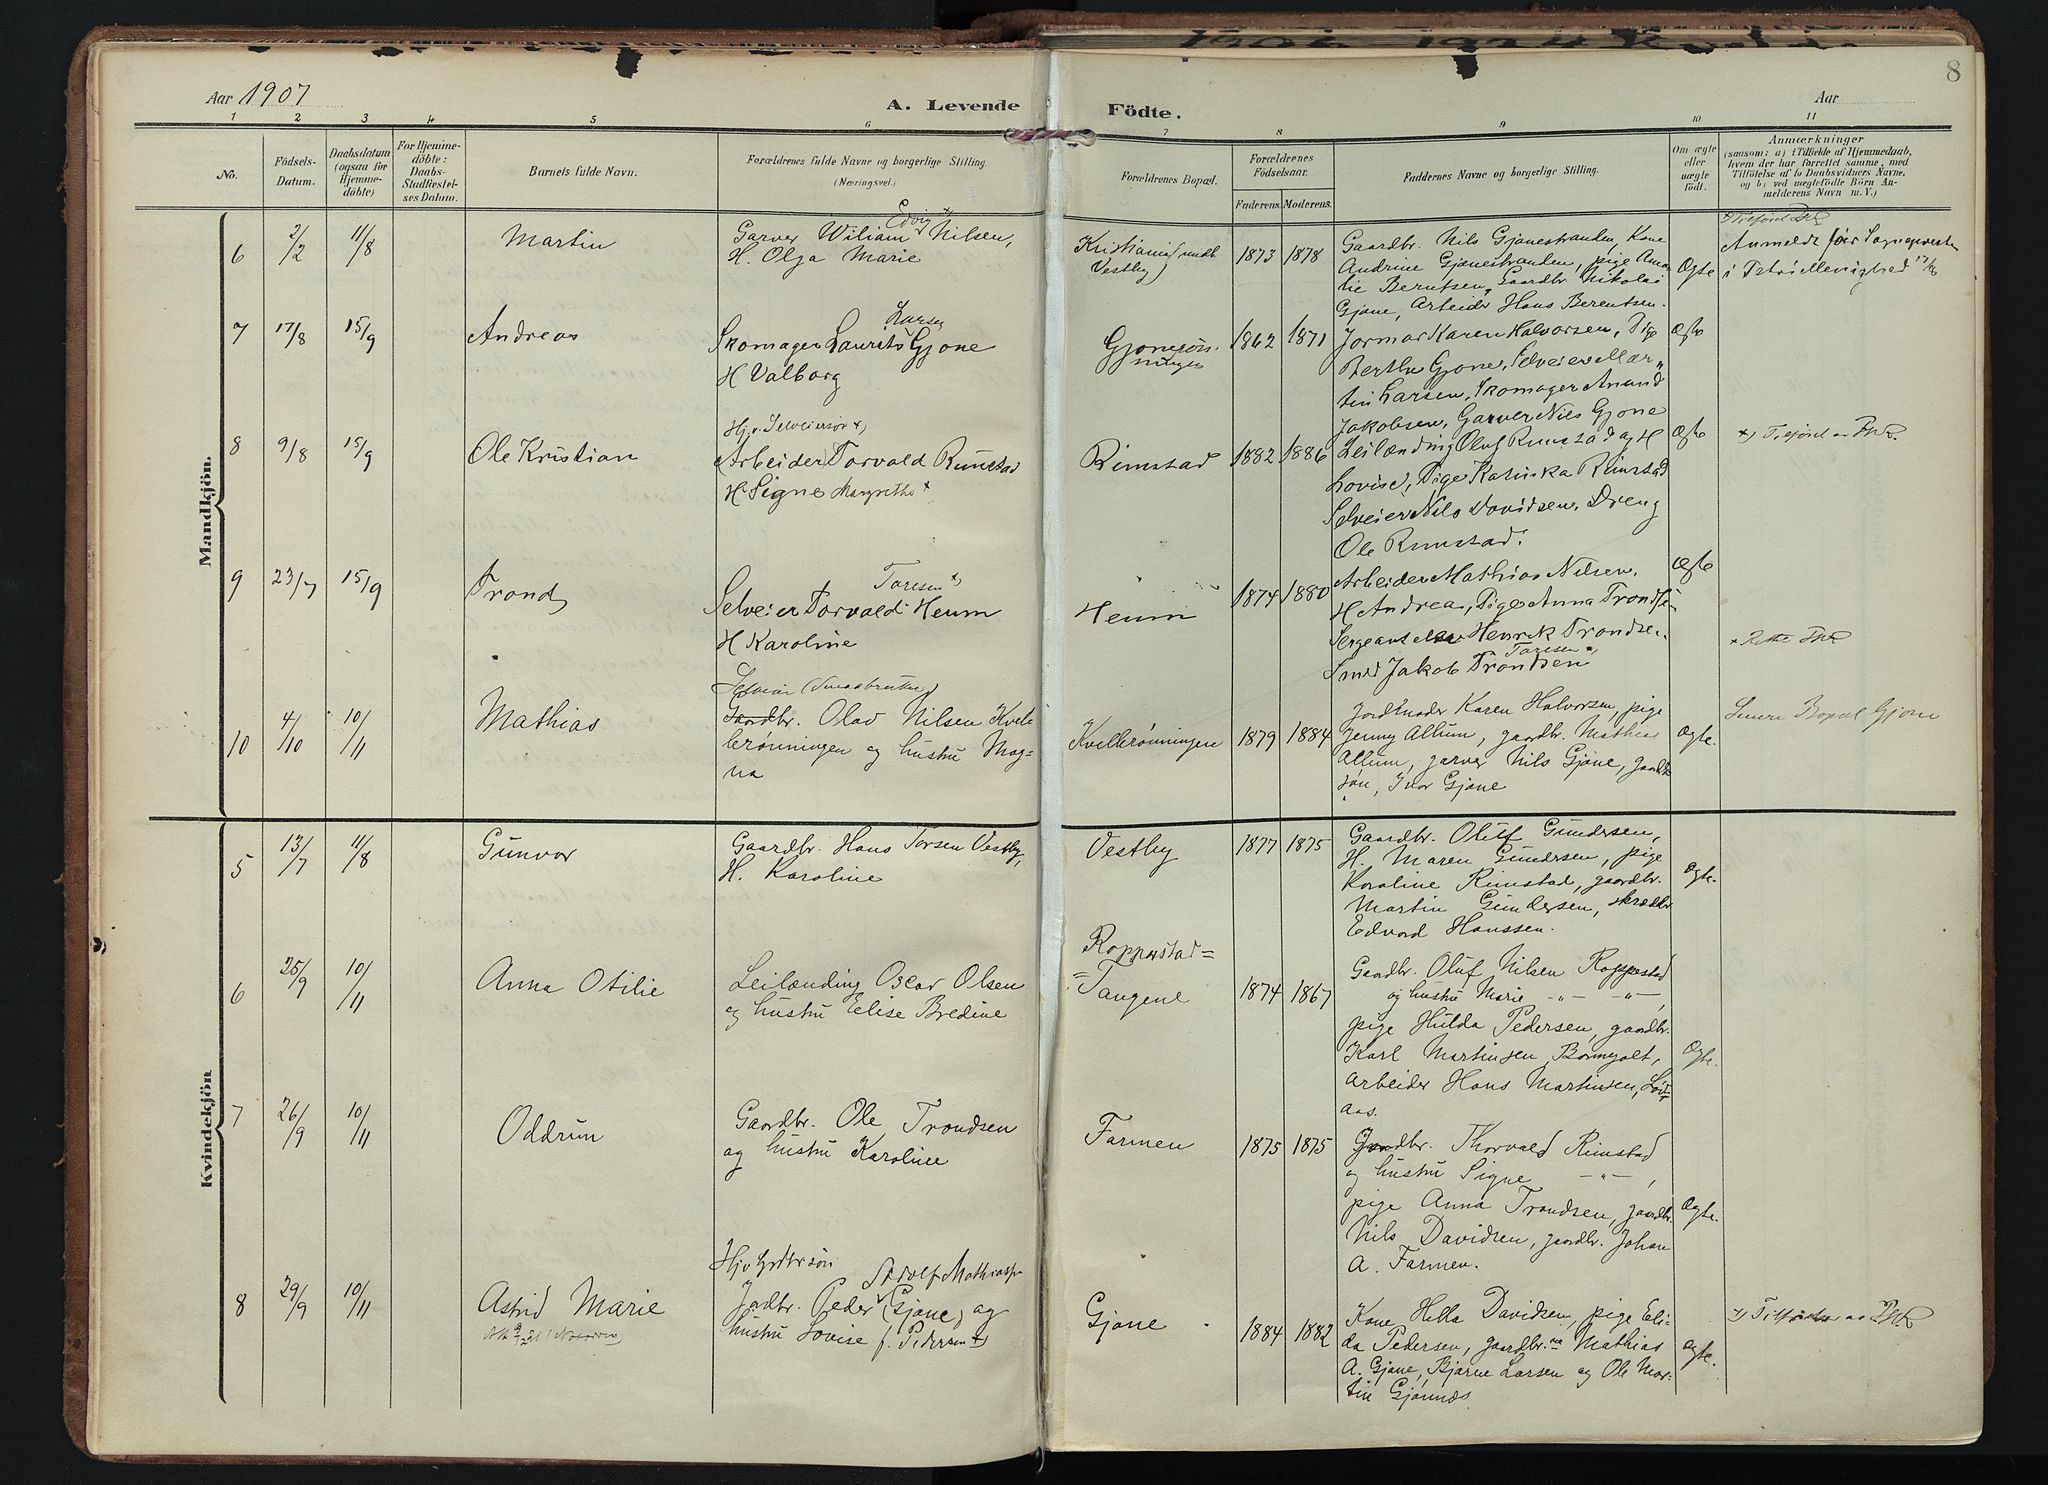 8
Aar 1907
A. Levende Födte.
Aar
1 2 3 4 5 6 7 8 9 10 11
No.
Födsels-
Datum.
Daabsdatum
(ogsaa for
Hjemme-
döbte)
For Hjemme-
döbte:
Daabs-
Stadfæstel-
ses Datum.
Barnets fulde Navn.
Forældrenes fulde Navne og borgerlige Stilling.
(Næringsvei.)
Forældrenes Bopæl.
Forældrenes
Födselsaar.
Faderens. Moderens.
Faddernes Navne og borgerlige Stilling.
Om ægte
eller
uægte
födt.
Anmærkninger
(saasom: a) i Tilfælde af Hjemmedaab,
hvem der har forrettet samme, med
Tilföielse af to Daabsvidners Navne,
og b) ved uægtefödte Börn An-
melderens Navn m. V.)
Mandkjön.
6 2/2 11/8 Martin
Edvig x)
Garver Wiliam Nilsen,
H. Olga Marie
Kristiania (undt
Vestby)
1873 1878
Gaardbr. Nils Gjonestranden, Kone
Andrine Gjonestranden, pige Ama-
lie Berntsen, Gaardbr. Nikolai
Gjone, Arbeider Hans Berentsen.
Ægte
Anmeldt for Sognepresten
7 17/8 15/9 Andreas
Larsen
Skomager Laurits Gjone
H Valborg
1862 1871
Jormor Karen Halvorsen, Pige
Berthe Gjone, Selveier Mar-
tin Larsen, Skomager Anund
Jakobsen, Garver Nils Gjone
Ægte
8 9/8 15/9 Ole Kristian
Hjv. Selveiersøn x)
Arbeider Torvald Rimstad
H Signe Margrethe x
Rimstad
1882 1886
Leilænding Oluf Rimstad og H
Lovise, Pige Katinka Rimstad
Selveier Nils Davidsen, Dreng
Ole Rimstad.
Ægte
9 23/7 15/9 Trond
Toresen x)
Selveier Torvald Heum
H Karoline
Heum
1874 1880
Arbeider Mathias Nilsen,
H Andrea, Pige Anna Trondsen
Henrik Trondsen.
Toresen x)
Smed Jakob Trondsen
Ægte
10 4/10 10/11 Mathias
Selveier (Smaabruker)
Gaardbr. Olav Nilsen Kvelle-
brønningen og hustru Mag-
na
Kvellerønningen
1879 1884
Jordmoder Karen Halvorsen, pige
Jenny Allum, gaardbr. Mathias
Allum, garver Nils Gjone, gaardbr.
søn, Ivar Gjone
Ægte.
Senere Bopæl Gjone
Kvindekjön
5 13/7 11/8 Gunvor
Gaardbr. Hans Torsen Vestby,
H. Karoline
Vestby
1877 1875
Gaardbr. Oluf Gundersen,
H. Maren Gundersen, pige
Karoline Rimstad, gaardbr.
Martin Gundersen, skrædder
Edvard Hanssen.
Ægte.
6 25/9 10/11 Anna Otilie
Leilænding Oscar Olsen
og hustru Elise Bredine
Roppestad=
=Tangene
1874 1867
Gaardbr. Oluf Nilsen Roppestad
og hustru Marie -"- -"-,
pige Hulda Pedersen, gaardbr.
Karl Martinsen Bonnegolt,
arbeider Hans Martinsen, Løv-
aas.
Ægte.
7 26/9 10/11 Oddrun
Gaardbr. Ole Trondsen
og hustru Karoline
Farmen
1875 1875
Gaardbr. Thorvald Rimstad
og hustru Signe -"-,
pige Anna Trondsen, gaardbr.
Nils Davidsen, gaardbr. Johan
A. Farmen.
Ægte.
8 29/9 10/11 Astrid Marie
Adolf Mathiassen
Jordbr. Peder (Gjone) og
hustru Lovise f. Pedersen x)
Gjone
1884 1882
Kone Hella Davidsen, pige Eli-
da Pedersen, gaardbr. Mathias
A. Gjone, Bjarne Larsen og Ole Mar-
tin Gjønnes.
Ægte.